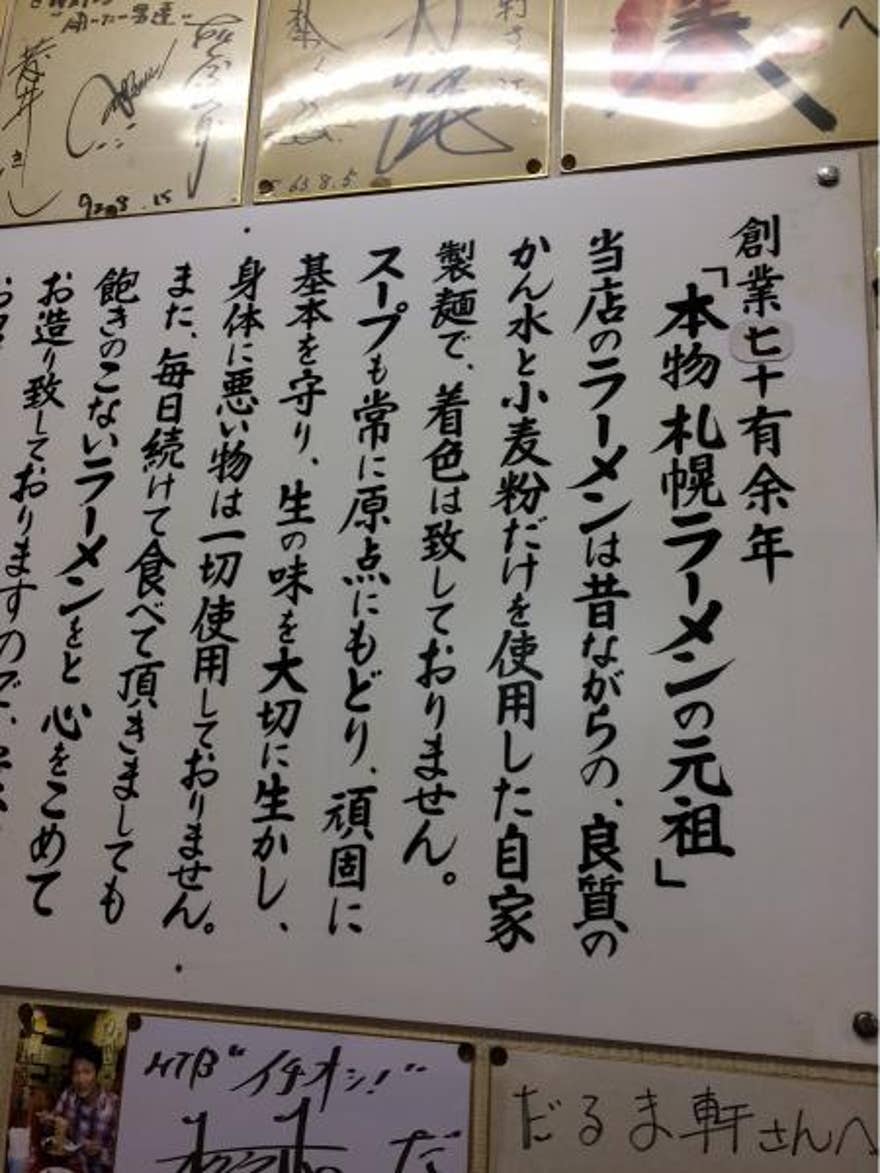 創業七十有余年
「本物札幌ラーメンの元祖」
当店のラーメンは昔ながらの、良質の
かん水と小麦粉だけを使用した自家
製麺で、着色は致しておりません。
スープも常に原点にもどり、頑固に
基本を守り、生の味を大切に生かし、
身体に悪い物は一切使用しておりません。
また、毎日続けて食べて頂きましても
飽きのこないラーメンをと心をこめて
お造り致しておりますので、
92.8.15
63.8.5
へ
HTB"イチオシ!"
だ
だるま軒さんへ